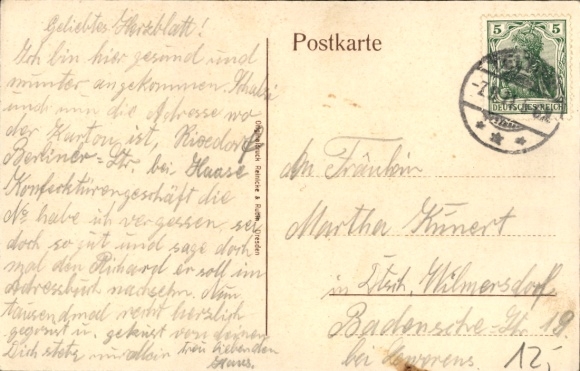 Geliebtes Herzblatt!
Ich bin hier gesund und
munter angekommen. Schatzi
und nun die Adresse wo
der Karton ist, Rixdorf
Berliner=Str. bei Haase
Konfecktürengeschäft die
No habe ich vergessen, sei
doch so gut und sage doch
mal den Richard er soll im
Adressbuch nachsehn. Nun
tausendmal recht herzlich
gegrüsst u. geküsst von deinen
Dich stets
treu liebenden
Hans.
Dresden
Postkarte
5 5
DEUTSCHES REICH
An Fräulein
Martha Kunert
in Dtsch. Wilmersdorf
Badensche=Str. 19
bei
12,-